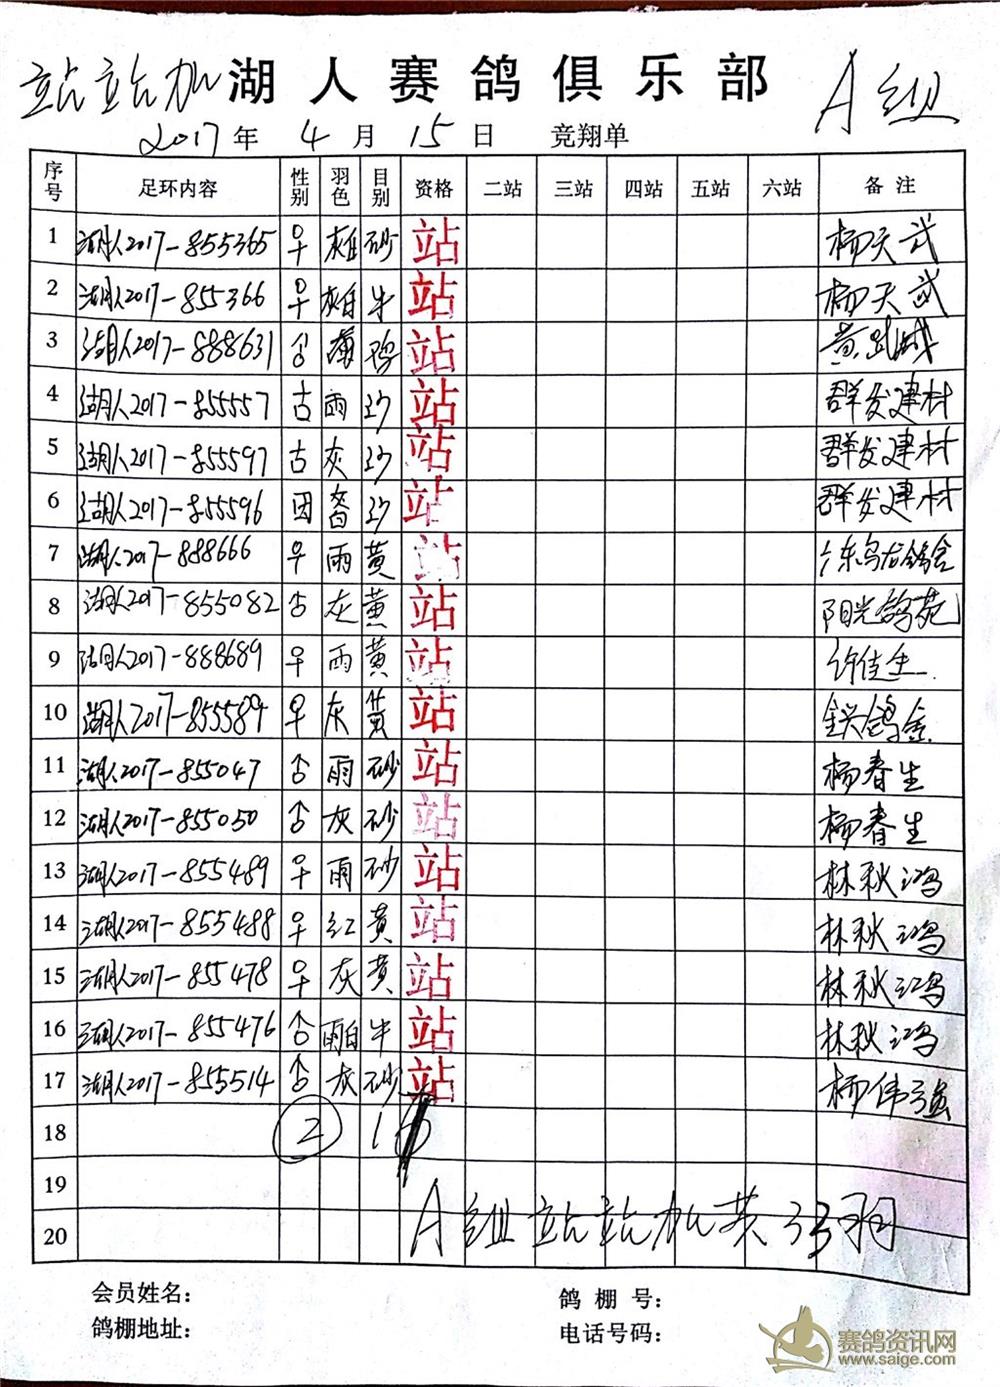 站站加 湖人赛鸽俱乐部 A组
2017年 4月 15日 竞翔单
序号 足环内容 性别 羽色 目别 资格 二站 三站 四站 五站 六站 备注
1 湖人2017-855365 ♀ 砂 站 杨天武
2 湖人2017-855366 ♀ 牛 站 杨天武
3 湖人2017-888631 站 黄
4 湖人2017-855557 雨 沙 站 群发建材
5 湖人2017-855597 灰 沙 站 群发建材
6 湖人2017-855596 沙 站 群发建材
7 湖人2017-888666 ♀ 雨 黄 站 广东乌龙鸽舍
8 湖人2017-855082 灰 黄 站 阳光鸽苑
9 湖人2017-888689 ♀ 雨 黄 站 许佳生
10 湖人2017-855589 ♀ 灰 黄 站
11 湖人2017-855047 雨 砂 站 杨春生
12 湖人2017-855050 灰 砂 站 杨春生
13 湖人2017-855489 ♀ 雨 砂 站 林秋鸿
14 湖人2017-855488 ♀ 红 黄 站 林秋鸿
15 湖人2017-855478 ♀ 灰 黄 站 林秋鸿
16 湖人2017-855476 牛 站 林秋鸿
17 湖人2017-855514 灰 砂 站 杨伟强
18 2
19
20 A组站站加共33羽
会员姓名： 鸽棚号：
鸽棚地址： 电话号码：
赛鸽资讯网
www.saige.com